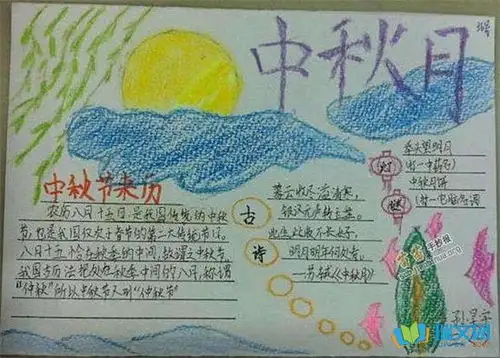 中秋月
中秋节来历
农历八月十五日是我国传统的中秋
节,也是我国仅次于春节的第二大传统节日。
八月十五恰在秋季的中间,故谓之中秋节。
我国古历法把处在秋季中间的八月,称谓
"仲秋"所以中秋节又叫"仲秋节"
古
诗
暮云收尽溢清寒,
银汉无声转玉盘。
此生此夜不长好,
明月明年何处看。
——苏轼《中秋月》
灯
谜
举头望明月
(打一中药名)
中秋月饼
(打一电脑名词
手抄报